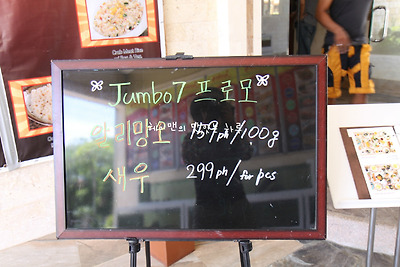 Crab Meat Rice
Jumbo7 프로모
알리망오 157ph/100g
새우 299ph/for pcs